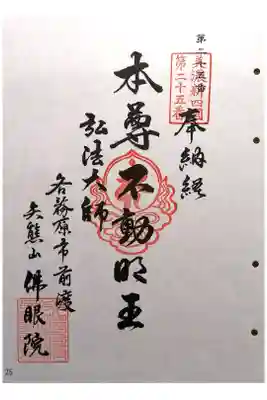 美濃新四国
第二十五番
奉納経
本尊不動明王
弘法大師
各務原市前渡
矢熊山 佛眼院
25